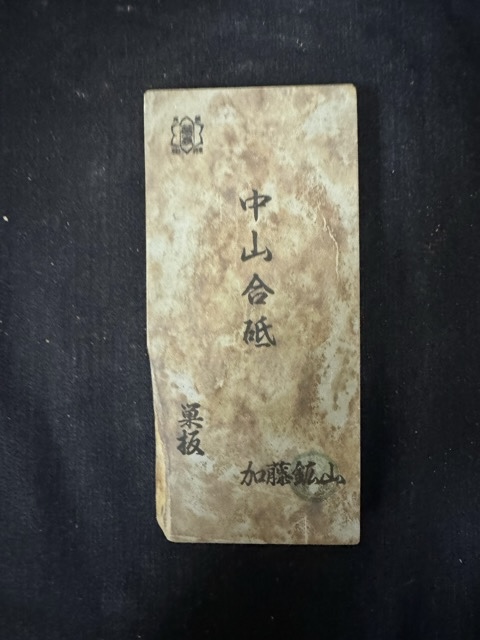 中山合砥
巣板
加藤鉱山